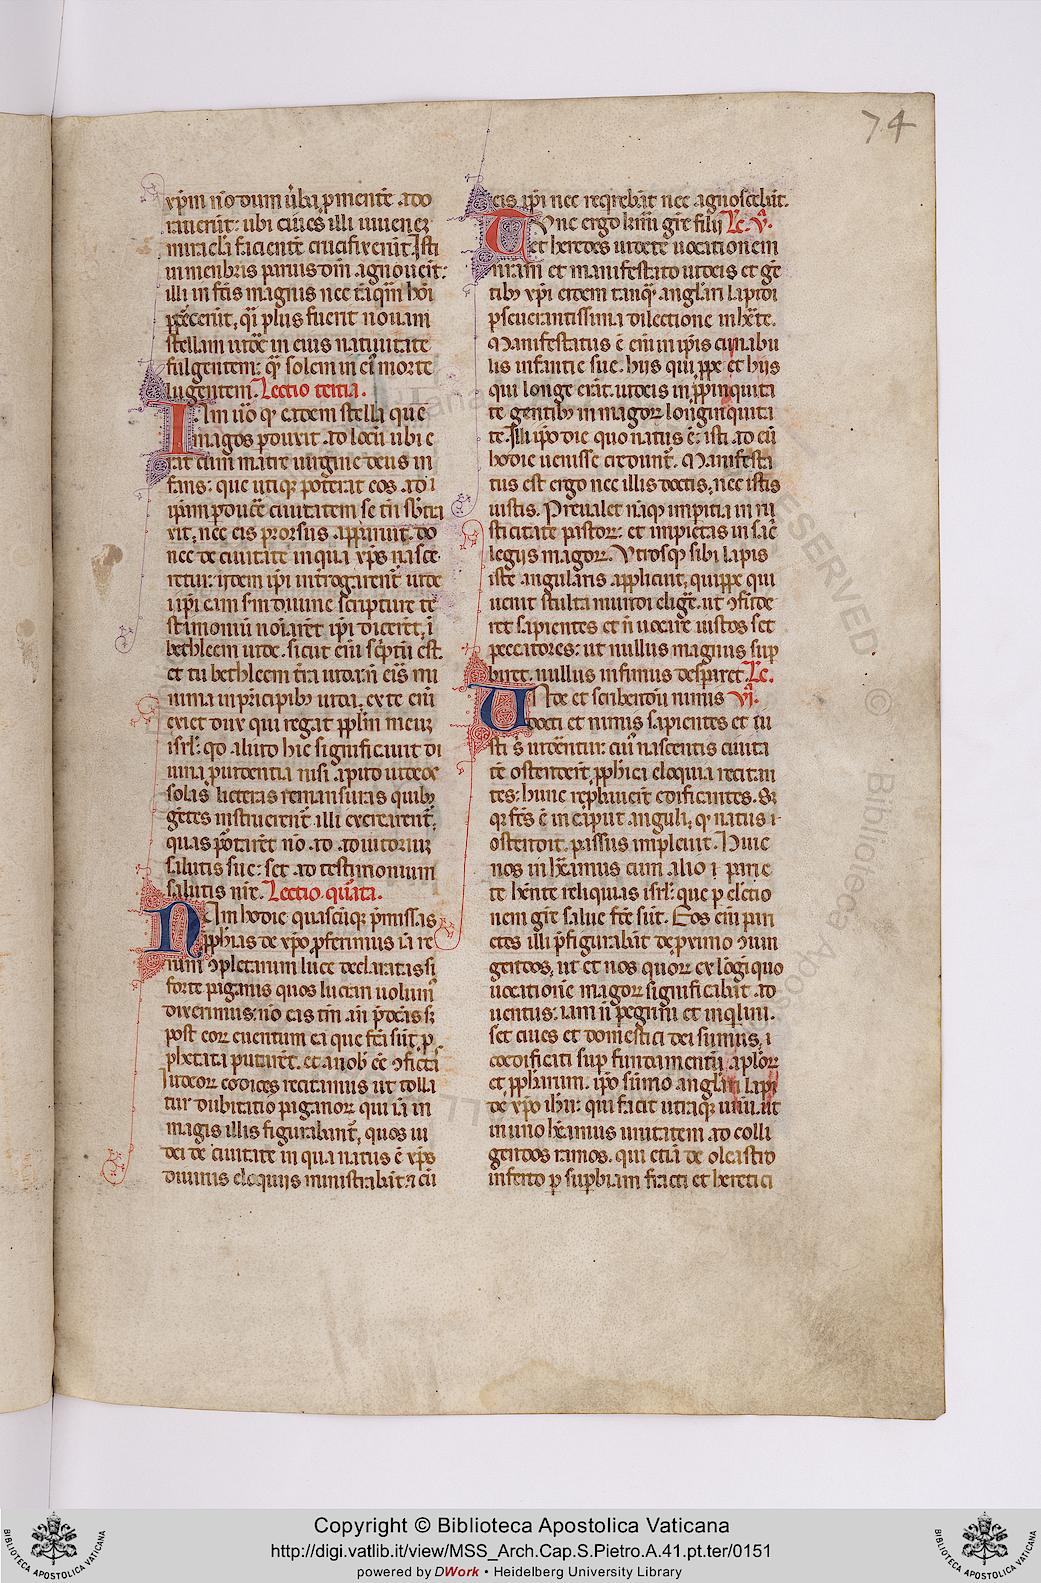 74
xp̄m nōdum ūba pmentē ado
rauerūt: ubi ciues illi iuuenē
miracla facientē crucifixerūt Isti
in menbris paruis dm̄ agnouerūt:
illi in fc̄is magnis nec tāq̄m hōī
pepcerūt, q̄i plus fuerit nouam
stellam uidē in eius natiuitate
fulgentem: q̄ solem in eī morte
lugentem. Lectio tertia.
Iam ūo qr̄ eadem stella que
magos pduxit ad locū ubi e
rat cum matre uirgine deus in
fans: que utiqꝫ poterat eos ad i
ip̄am pducē ciuitatem se tn̄ sbtra
xit, nec eis prorsus apparuit. do
nec de ciuitate in qua xp̄s nasce
retur: iidem ip̄i introgarent̄ iude
i ip̄i eam scdm diuine scripture te
stimoniū noīarēt ip̄i dicerēt, ī
bethleem iude. sicut eni scptū est.
et tu bethleem tr̄a iuda n̄ eīs mi
nima in pncipibꝫ iuda. ex te eni
exiet dux qui regat pplm̄ meū
isrl: qd aliud hic significauit di
uina puidentia nisi apud iudeos
solas litteras remansuras quibꝫ
gētes instruerent̄ illi excecarent̄,
quas portarēt nō ad adiutoriū
salutis sue: set ad testimonium
salutis nr̄e. Lectio quarta.
Nam hodie quascūqꝫ pmissas
pphias de xpo pferimus ia re
rum ɔpletarum luce declaratas si
forte paganis quos lucrari uolum̄
dixerimus: nō eas tm̄ an pdc̄as s;
post eoꝝ euentum ea que fc̄a sūt p
phetata putarēt. et a nob ēē ɔficta
iudeoꝝ codices recitamus ut tolla
tur dubitatio paganoꝝ qui ia in
magis illis figurabant̄, quos iu
dei de ciuitate in qua natus ē xp̄s
diuinis eloquiis ministrabāt. a cū
eis ip̄i nec reqrebāt nec agnoscebāt.
Nunc ergo kmi gr̄e filij Lc̄. v.ͣ
et heredes uidete uocationem
uram et manifestato iudeis et gē
tibꝫ xp̄i eidem tanqꝫ anglari lapidi
pseuerantissima dilectione inhrēte.
Manifestatus ē eni in ip̄is cunabu
lis infantie sue. hijs qui ppe et hijs
qui longe erāt. iudeis in ppinquita
te gentibꝫ in magoꝝ longinquita
te. Illi ip̄o die quo natus ē: isti ad eū
hodie uenisse credunt̄. Manifesta
tus est ergo nec illis doctis, nec istis
iustis. Preualet nāqꝫ inpitia in ru
sticitate pastoꝝ: et impietas in sac̄
legiis magoꝝ. Utrosqꝫ sibi lapis
iste angularis applicuit, quippe qui
uenit stulta mundi eligē. ut ɔfūde
ret sapientes et n̄ uocare iustos set
peccatores: ut nullus magnus sup
biret. nullus infimus desparet. Lc̄.
Unde et scribendū nimis vi.ͣ
docti et nimis sapientes et iu
sti s uidentur: cū nascentis ciuita
tē ostenderūt, pphica eloquia recitan
tes: hunc repbauerūt edificantes. S;
qr fc̄s ē in caput anguli, qd natus i
ostendit. passus impleuit. Huic
nos inhreamus cum alio i parie
te hēnte reliquias isrl: que p electio
nem gr̄e salue fc̄e sūt. Eos eni pari
etes illi pfigurabāt de pximo ɔiun
gendos, ut et nos quoꝝ ex lōgīquo
uocationē magoꝝ significabāt ad
uentus: iam n̄ pegrini et inqlini.
set ciues et domestici dei sumus, i
coedificati sup fundamentū aploꝝ
et pphanum. ip̄o sūmo anglari lapi
de xpo ihu: qui facit utraqꝫ unū. ut
in uno hreamus unitatem ad colli
gendos ramos. qui etia de oleastro
inferto p supbiam fracti et heretici
Copyright © Biblioteca Apostolica Vaticana
http://digi.vatlib.it/view/MSS_Arch.Cap.S.Pietro.A.41.pt.ter/0151
powered by DWork • Heidelberg University Library